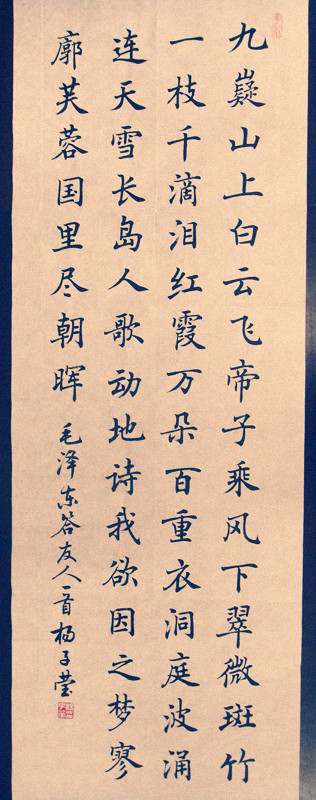 九嶷山上白云飞帝子乘风下翠微斑竹
一枝千滴泪红霞万朵百重衣洞庭波涌
连天雪长岛人歌动地诗我欲因之梦寥
廓芙蓉国里尽朝晖 毛泽东答友人一首 杨子莹